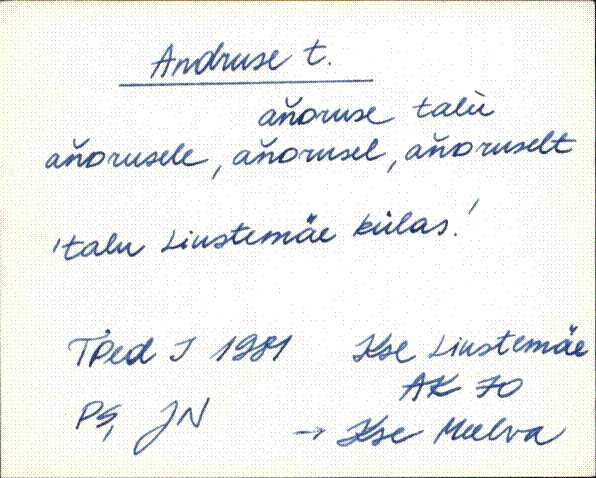 Andruse t.
aňdruse talù
aňdrusele, aňdrusel, aňdruselt
'talu Liustemäe külas!
TPed I 1981 Kse Liustemäe
AK 70
PS, JN → Kse Mulva